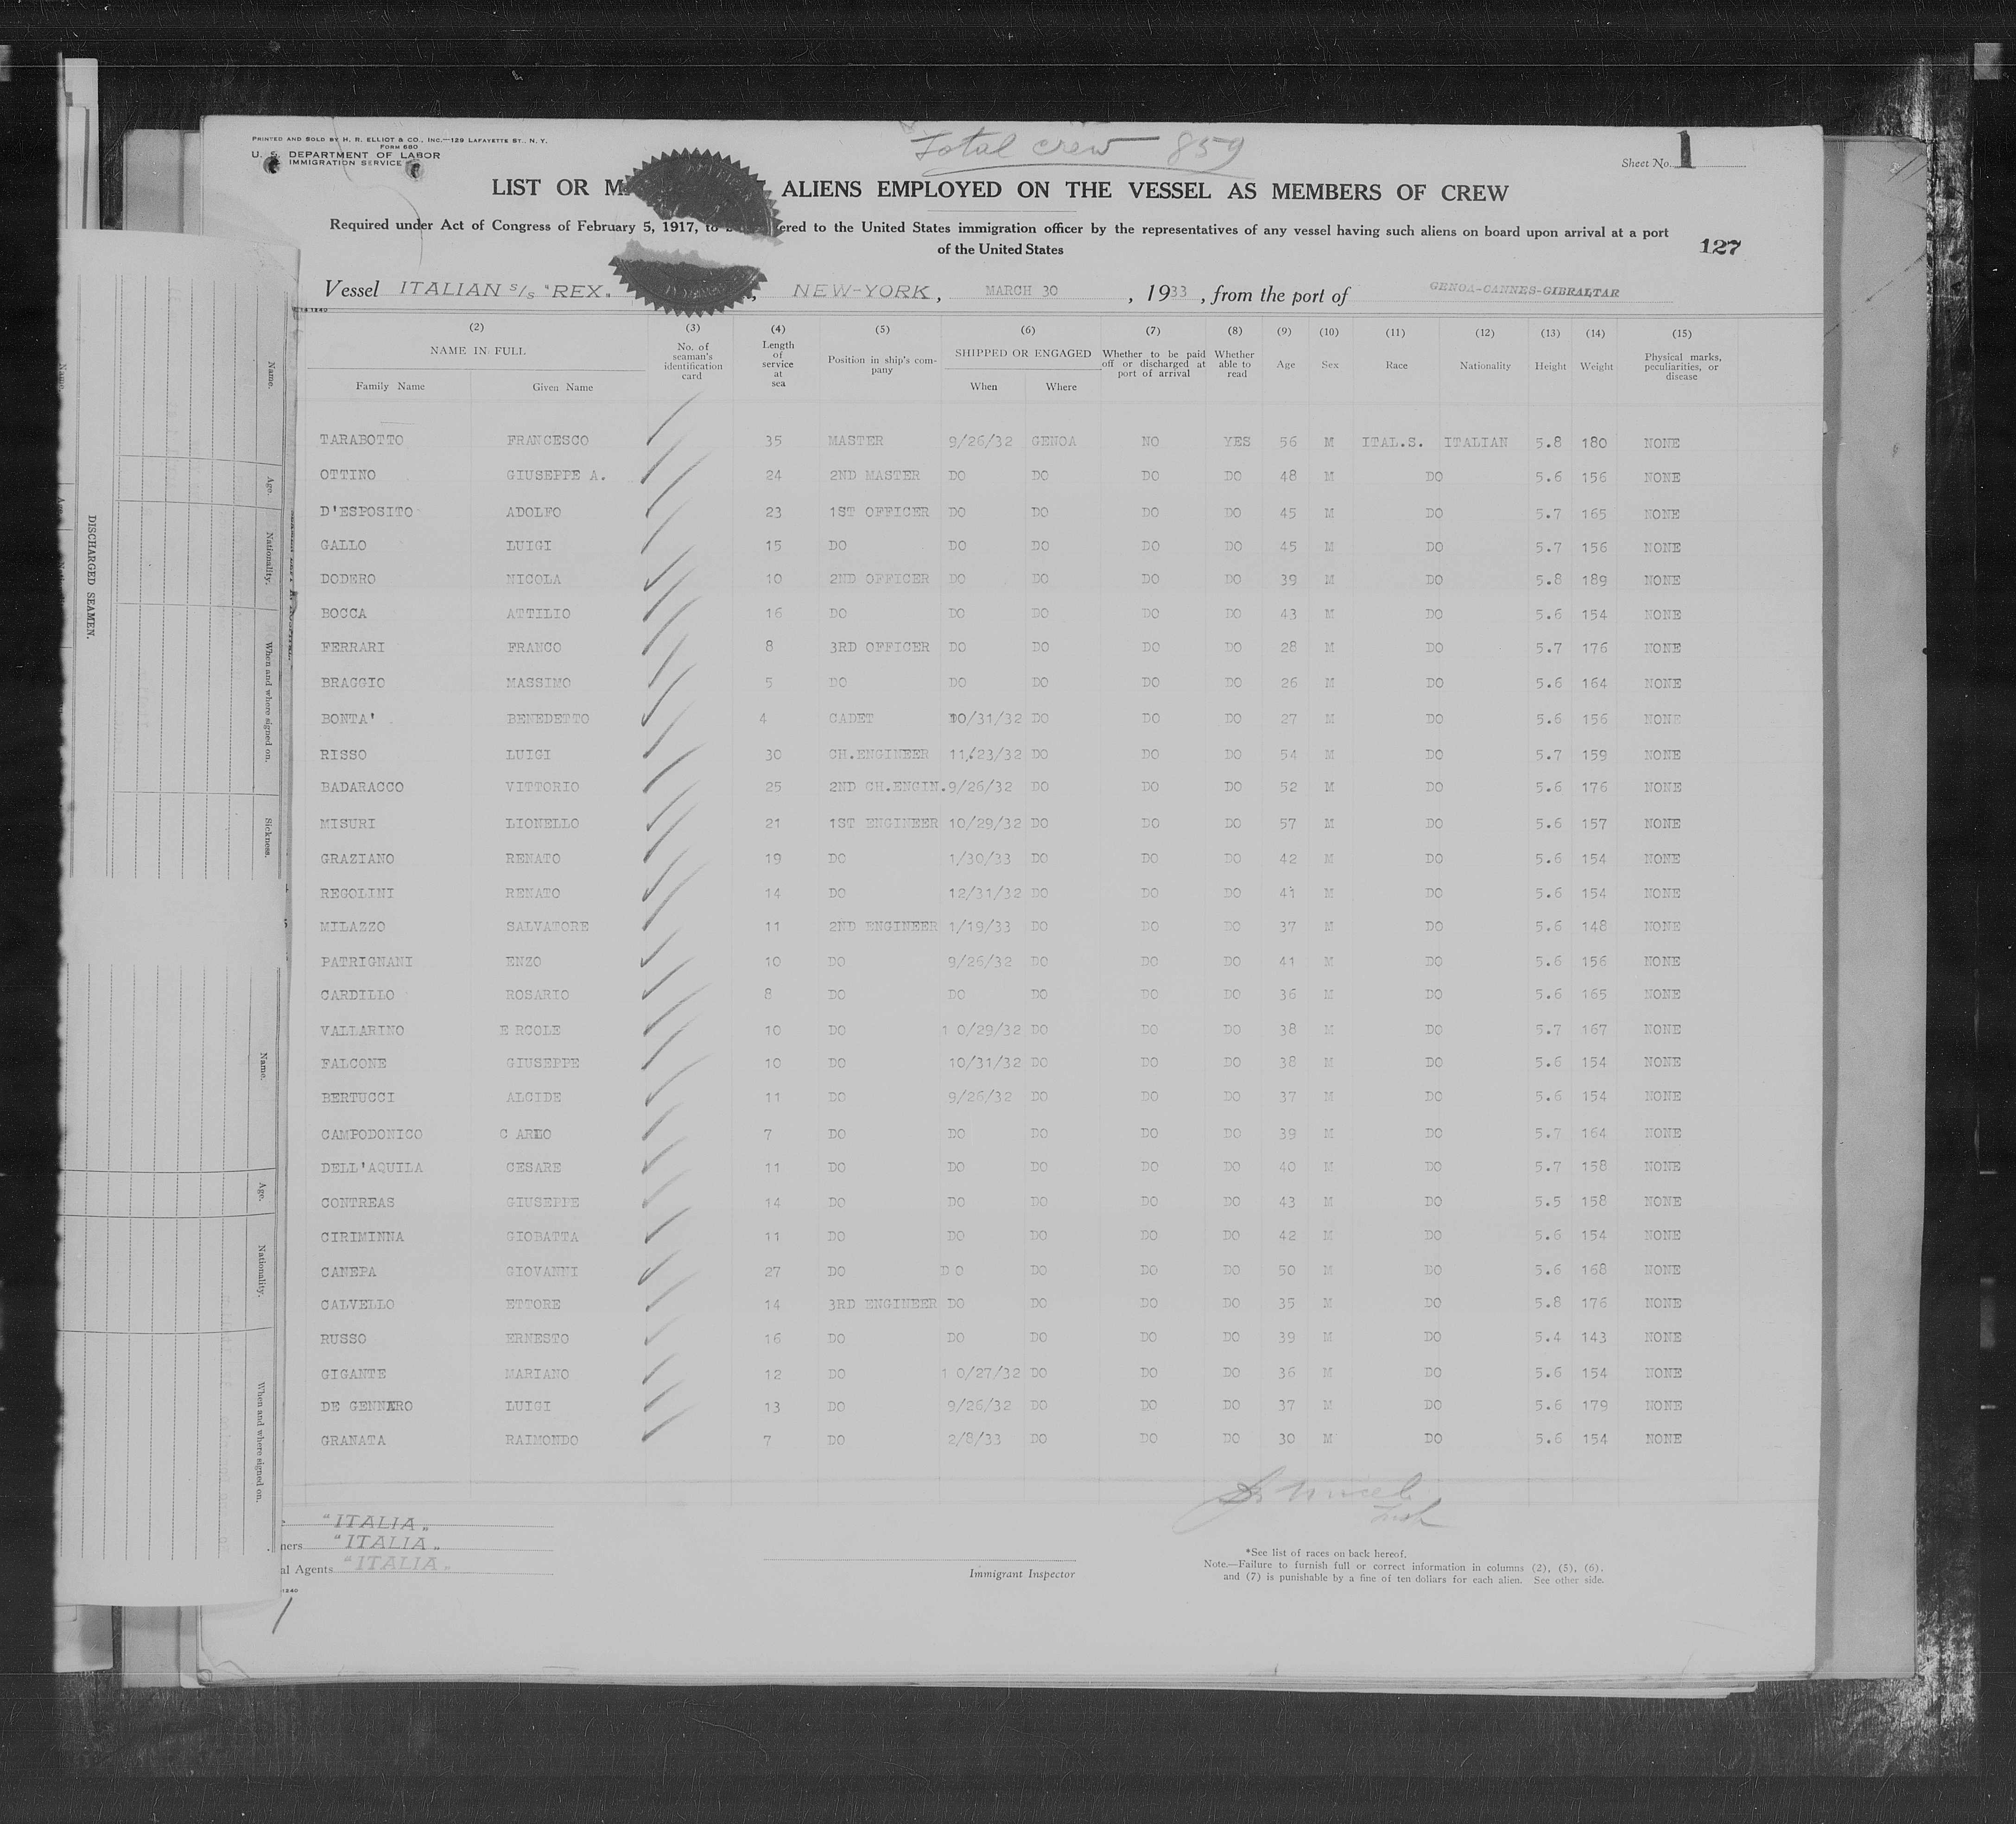 PRINTED AND SOLD BY H. R. ELLIOT & CO., INC.—129 LAFAYETTE ST., N. Y.
FORM 680
U. S. DEPARTMENT OF LABOR
IMMIGRATION SERVICE
Total crew 859
Sheet No. 1
LIST OR ALIENS EMPLOYED ON THE VESSEL AS MEMBERS OF CREW
Required under Act of Congress of February 5, 1917, to the United States immigration officer by the representatives of any vessel having such aliens on board upon arrival at a port
of the United States
127
Vessel ITALIAN S/S "REX" , NEW-YORK, MARCH 30, 1933, from the port of GENOA-CANNES-GIBRALTAR
(2) (3) (4) (5) (6) (7) (8) (9) (10) (11) (12) (13) (14) (15)
NAME IN FULL No. of seaman's identification card Length of service at sea Position in ship's company SHIPPED OR ENGAGED Whether to be paid off or discharged at port of arrival Whether able to read Age Sex Race Nationality Height Weight Physical marks, peculiarities, or disease
Family Name Given Name When Where
TARABOTTO FRANCESCO 35 MASTER 9/26/32 GENOA NO YES 56 M ITAL.S. ITALIAN 5.8 180 NONE
OTTINO GIUSEPPE A. 24 2ND MASTER DO DO DO DO 48 M DO 5.6 156 NONE
D'ESPOSITO ADOLFO 23 1ST OFFICER DO DO DO DO 45 M DO 5.7 165 NONE
GALLO LUIGI 15 DO DO DO DO DO 45 M DO 5.7 156 NONE
DODERO NICOLA 10 2ND OFFICER DO DO DO DO 39 M DO 5.8 189 NONE
BOCCA ATTILIO 16 DO DO DO DO DO 43 M DO 5.6 154 NONE
FERRARI FRANCO 8 3RD OFFICER DO DO DO DO 28 M DO 5.7 176 NONE
BRAGGIO MASSIMO 5 DO DO DO DO DO 26 M DO 5.6 164 NONE
BONTA' BENEDETTO 4 CADET 10/31/32 DO DO DO 27 M DO 5.6 156 NONE
RISSO LUIGI 30 CH.ENGINEER 11/23/32 DO DO DO 54 M DO 5.7 159 NONE
BADARACCO VITTORIO 25 2ND CH.ENGIN. 9/26/32 DO DO DO 52 M DO 5.6 176 NONE
MISURI LIONELLO 21 1ST ENGINEER 10/29/32 DO DO DO 57 M DO 5.6 157 NONE
GRAZIANO RENATO 19 DO 1/30/33 DO DO DO 42 M DO 5.6 154 NONE
REGOLINI RENATO 14 DO 12/31/32 DO DO DO 41 M DO 5.6 154 NONE
MILAZZO SALVATORE 11 2ND ENGINEER 1/19/33 DO DO DO 37 M DO 5.6 148 NONE
PATRIGNANI ENZO 10 DO 9/26/32 DO DO DO 41 M DO 5.6 156 NONE
CARDILLO ROSARIO 8 DO DO DO DO DO 36 M DO 5.6 165 NONE
VALLARINO E RCOLE 10 DO 1 0/29/32 DO DO DO 38 M DO 5.7 167 NONE
FALCONE GIUSEPPE 10 DO 10/31/32 DO DO DO 38 M DO 5.6 154 NONE
BERTUCCI ALCIDE 11 DO 9/26/32 DO DO DO 37 M DO 5.6 154 NONE
CAMPODONICO C ARLO 7 DO DO DO DO DO 39 M DO 5.7 164 NONE
DELL'AQUILA CESARE 11 DO DO DO DO DO 40 M DO 5.7 158 NONE
CONTREAS GIUSEPPE 14 DO DO DO DO DO 43 M DO 5.5 158 NONE
CIRIMINNA GIOBATTA 11 DO DO DO DO DO 42 M DO 5.6 154 NONE
CANEPA GIOVANNI 27 DO D O DO DO DO 50 M DO 5.6 168 NONE
CALVELLO ETTORE 14 3RD ENGINEER DO DO DO DO 35 M DO 5.8 176 NONE
RUSSO ERNESTO 16 DO DO DO DO DO 39 M DO 5.4 143 NONE
GIGANTE MARIANO 12 DO 1 0/27/32 DO DO DO 36 M DO 5.6 154 NONE
DE GENNARO LUIGI 13 DO 9/26/32 DO DO DO 37 M DO 5.6 179 NONE
GRANATA RAIMONDO 7 DO 2/8/33 DO DO DO 30 M DO 5.6 154 NONE
"ITALIA"
ners "ITALIA"
al Agents "ITALIA"
1240
Immigrant Inspector
*See list of races on back hereof.
Note.—Failure to furnish full or correct information in columns (2), (5), (6),
and (7) is punishable by a fine of ten dollars for each alien. See other side.
DISCHARGED SEAMEN.
Name. Age. Nationality. When and where signed on. Sickness.
Name. Age. Nationality. When and where signed on.